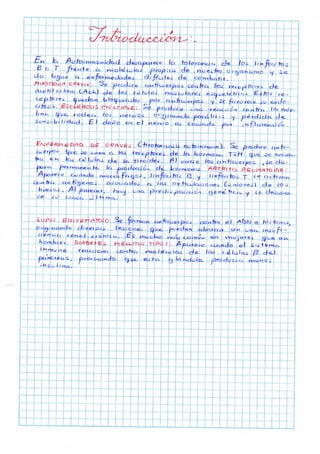 Introducción:
En la Autoinmunidad desaparece la tolerancia de los linfocitos
B o T frente a moléculas propias de nuestro organismo y se
da lugar a enfermedades difíciles de combatir.
MIASTENIA GRAVIS: Se produce anticuerpos contra los receptores de
acetilcolina (Ach) de las células musculares esqueléticas. Estos re-
ceptores quedan bloqueados por anticuerpos y se favorece su endo-
citosis. ESCLEROSIS MÚLTIPLE: Se produce una reacción contra la mie-
lina que rodea los nervios originando parálisis y pérdida de
sensibilidad. El daño en el nervio es causado por inflamación
ENFERMEDAD DE GRAVES (Hipertiroidismo autoinmune). Se produce anti-
cuerpos que se unen a los receptores de la hormona TSH que se encuen-
tra en las células de la tiroides. Al unirse los anticuerpos, se dis-
para permanente la producción de hormonas ARTRITIS REUMATOIDE:
Aparece cuando macrófagos, linfocitos B y linfocitos T se activan
contra antígenos asociados a las articulaciones (uniones) de los
huesos. Al parecer, hay una predisposición genética y se descono-
ce su causa última.
LUPUS ERITEMATOSO: Se forman anticuerpos contra el ADN e histona,
originando diversas lesiones que puedan abocar en una insufi-
ciencia renal crónica. Es mucho más común en mujeres que en
hombres. DIABETES MELLITUS TIPO I: Aparece cuando el sistema
inmune reacciona contra moléculas de las células β del
páncreas, provocando que esta glándula produzca menos
insulina.